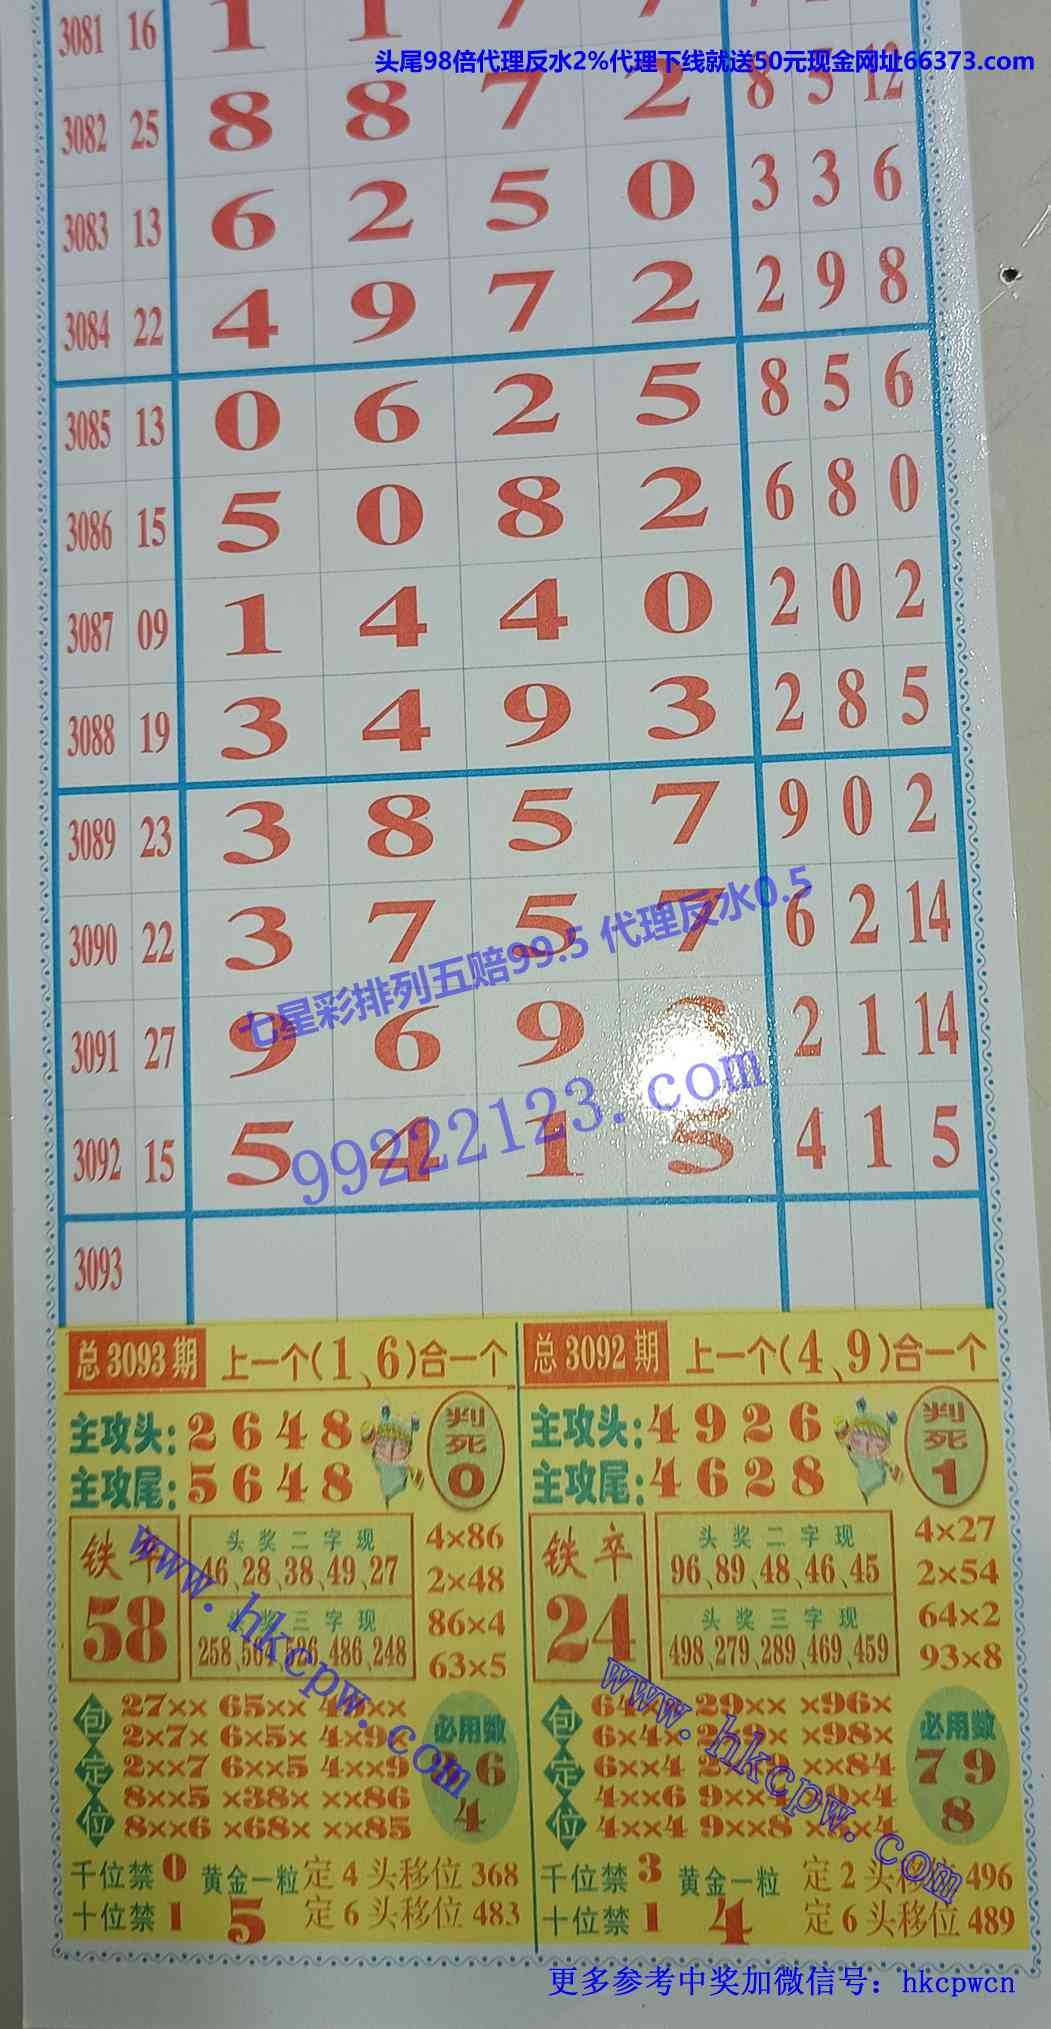 3081 16 1 1 7 7
头尾98倍代理反水2%代理下线就送50元现金网址66373.com
3082 25 8 8 7 2 8 5 12
3083 13 6 2 5 0 3 3 6
3084 22 4 9 7 2 2 9 8
3085 13 0 6 2 5 8 5 6
3086 15 5 0 8 2 6 8 0
3087 09 1 4 4 0 2 0 2
3088 19 3 4 9 3 2 8 5
3089 23 3 8 5 7 9 0 2
3090 22 3 7 5 7 6 2 14
七星彩排列五赔99.5 代理反水0.5
3091 27 9 6 9 2 1 14
99222123.com
3092 15 5 4 1 5 4 1 5
3093
总3093期 上一个(1、6)合一个
主攻头:2648
主攻尾:5648
判死0
铁卒
58
头奖二字现
46、28、38、49、27
头奖三字现
258、564、526、486、248
4×86
2×48
86×4
63×5
包定位
27×× 65×× 49××
2×7× 6×5× 4×9×
2××7 6××5 4××9
8××5 ×38× ××86
8××6 ×68× ××85
必用数
6
4
千位禁0 黄金一粒 定4头移位368
十位禁1 5 定6头移位483
www.hkcpw.com
总3092期 上一个(4、9)合一个
主攻头:4926
主攻尾:4628
判死1
铁卒
24
头奖二字现
96、89、48、46、45
头奖三字现
498、279、289、469、459
4×27
2×54
64×2
93×8
包定位
29×× ×96×
6×4× ×98×
6××4 ××84
4××6
4××4 9××8
必用数
7 9
8
千位禁3 黄金一粒 定2头移位496
十位禁1 4 定6头移位489
www.hkcpw.com
更多参考中奖加微信号：hkcpwcn